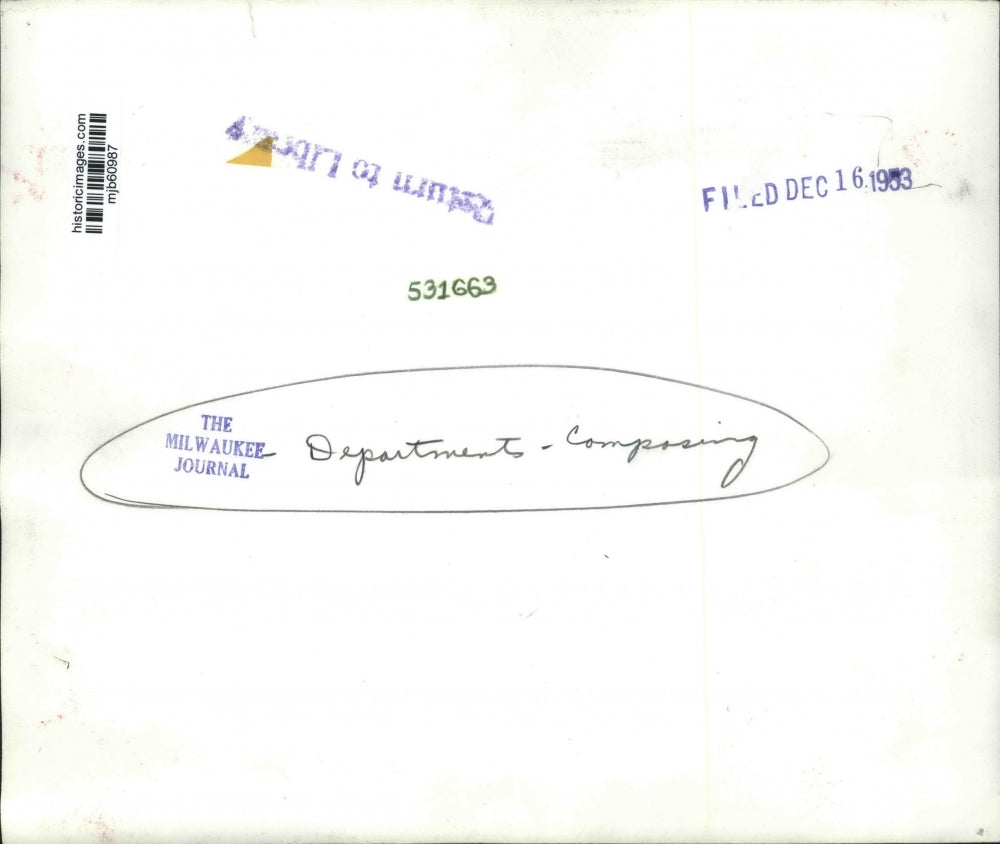 historicimages.com
mjb60987
Return to Library
FILED DEC 16 1953
531663
THE
MILWAUKEE
JOURNAL
Departments - Composing